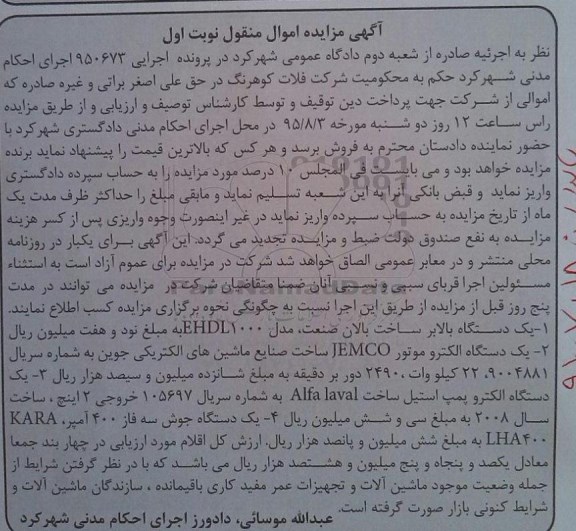 آگهی مزایده اموال منقول نوبت اول
نظر به اجرئیه صادره از شعبه دوم دادگاه عمومی شهرکرد در پرونده اجرایی ۹۵۰۶۷۳ اجرای احکام
مدنی شهرکرد حکم به محکومیت شرکت فلات کوهرنگ در حق علی اصغر براتی و غیره صادره که
اموالی از شرکت جهت پرداخت دین توقیف و توسط کارشناس توصیف و ارزیابی و از طریق مزایده
راس ساعت ۱۲ روز دو شنبه مورخه ۹۵/۸/۳ در محل اجرای احکام مدنی دادگستری شهرکرد با
حضور نماینده دادستان محترم به فروش برسد و هر کس که بالاترین قیمت را پیشنهاد نماید برنده
مزایده خواهد بود و می باید فی المجلس ۱۰ درصد مورد مزایده را به حساب سپرده دادگستری
واریز نماید و قبض بانکی آنرا به این شعبه تسلیم نماید و مابقی مبلغ را حداکثر ظرف مدت یک
ماه از تاریخ مزایده به حساب سپرده واریز نماید در غیر اینصورت وجوه واریزی پس از کسر هزینه
مزایده به نفع صندوق دولت ضبط و مزایده تجدید می گردد. این آگهی برای یکبار در روزنامه
محلی منتشر و در معابر عمومی الصاق خواهد شد شرکت در مزایده برای عموم آزاد است به استثناء
مسئولین اجرا قربای سببی و نسبی آنان ضمنا متقاضیان شرکت در مزایده می توانند در مدت
پنج روز قبل از مزایده از طریق این اجرا نسبت به چگونگی نحوه برگزاری مزایده کسب اطلاع نمایند.
۱-یک دستگاه بالابر ساخت بالان صنعت، مدل EHDL۱۰۰۰به مبلغ نود و هفت میلیون ریال
۲- یک دستگاه الکترو موتور JEMCO ساخت صنایع ماشین های الکتریکی جوین به شماره سریال
۹۰۰۴۸۸۱، ۲۲ کیلو وات ،۲۴۹۰ دور بر دقیقه به مبلغ شانزده میلیون و سیصد هزار ریال ۳- یک
دستگاه الکترو پمپ استیل ساخت Alfa laval به شماره سریال ۱۰۵۶۹۷ خروجی ۲ اینچ ، ساخت
سال ۲۰۰۸ به مبلغ سی و شش میلیون ریال ۴- یک دستگاه جوش سه فاز ۴۰۰ آمپر، KARA
LHA۴۰۰ به مبلغ شش میلیون و پانصد هزار ریال. ارزش کل اقلام مورد ارزیابی در چهار بند جمعا
معادل یکصد و پنجاه و پنج میلیون و هشتصد هزار ریال می باشد که با در نظر گرفتن شرایط از
جمله وضعیت موجود ماشین آلات و تجهیزات عمر مفید کاری باقیمانده ، سازندگان ماشین آلات و
شرایط کنونی بازار صورت گرفته است.
عبدالله موسائی، دادورز اجرای احکام مدنی شهرکرد